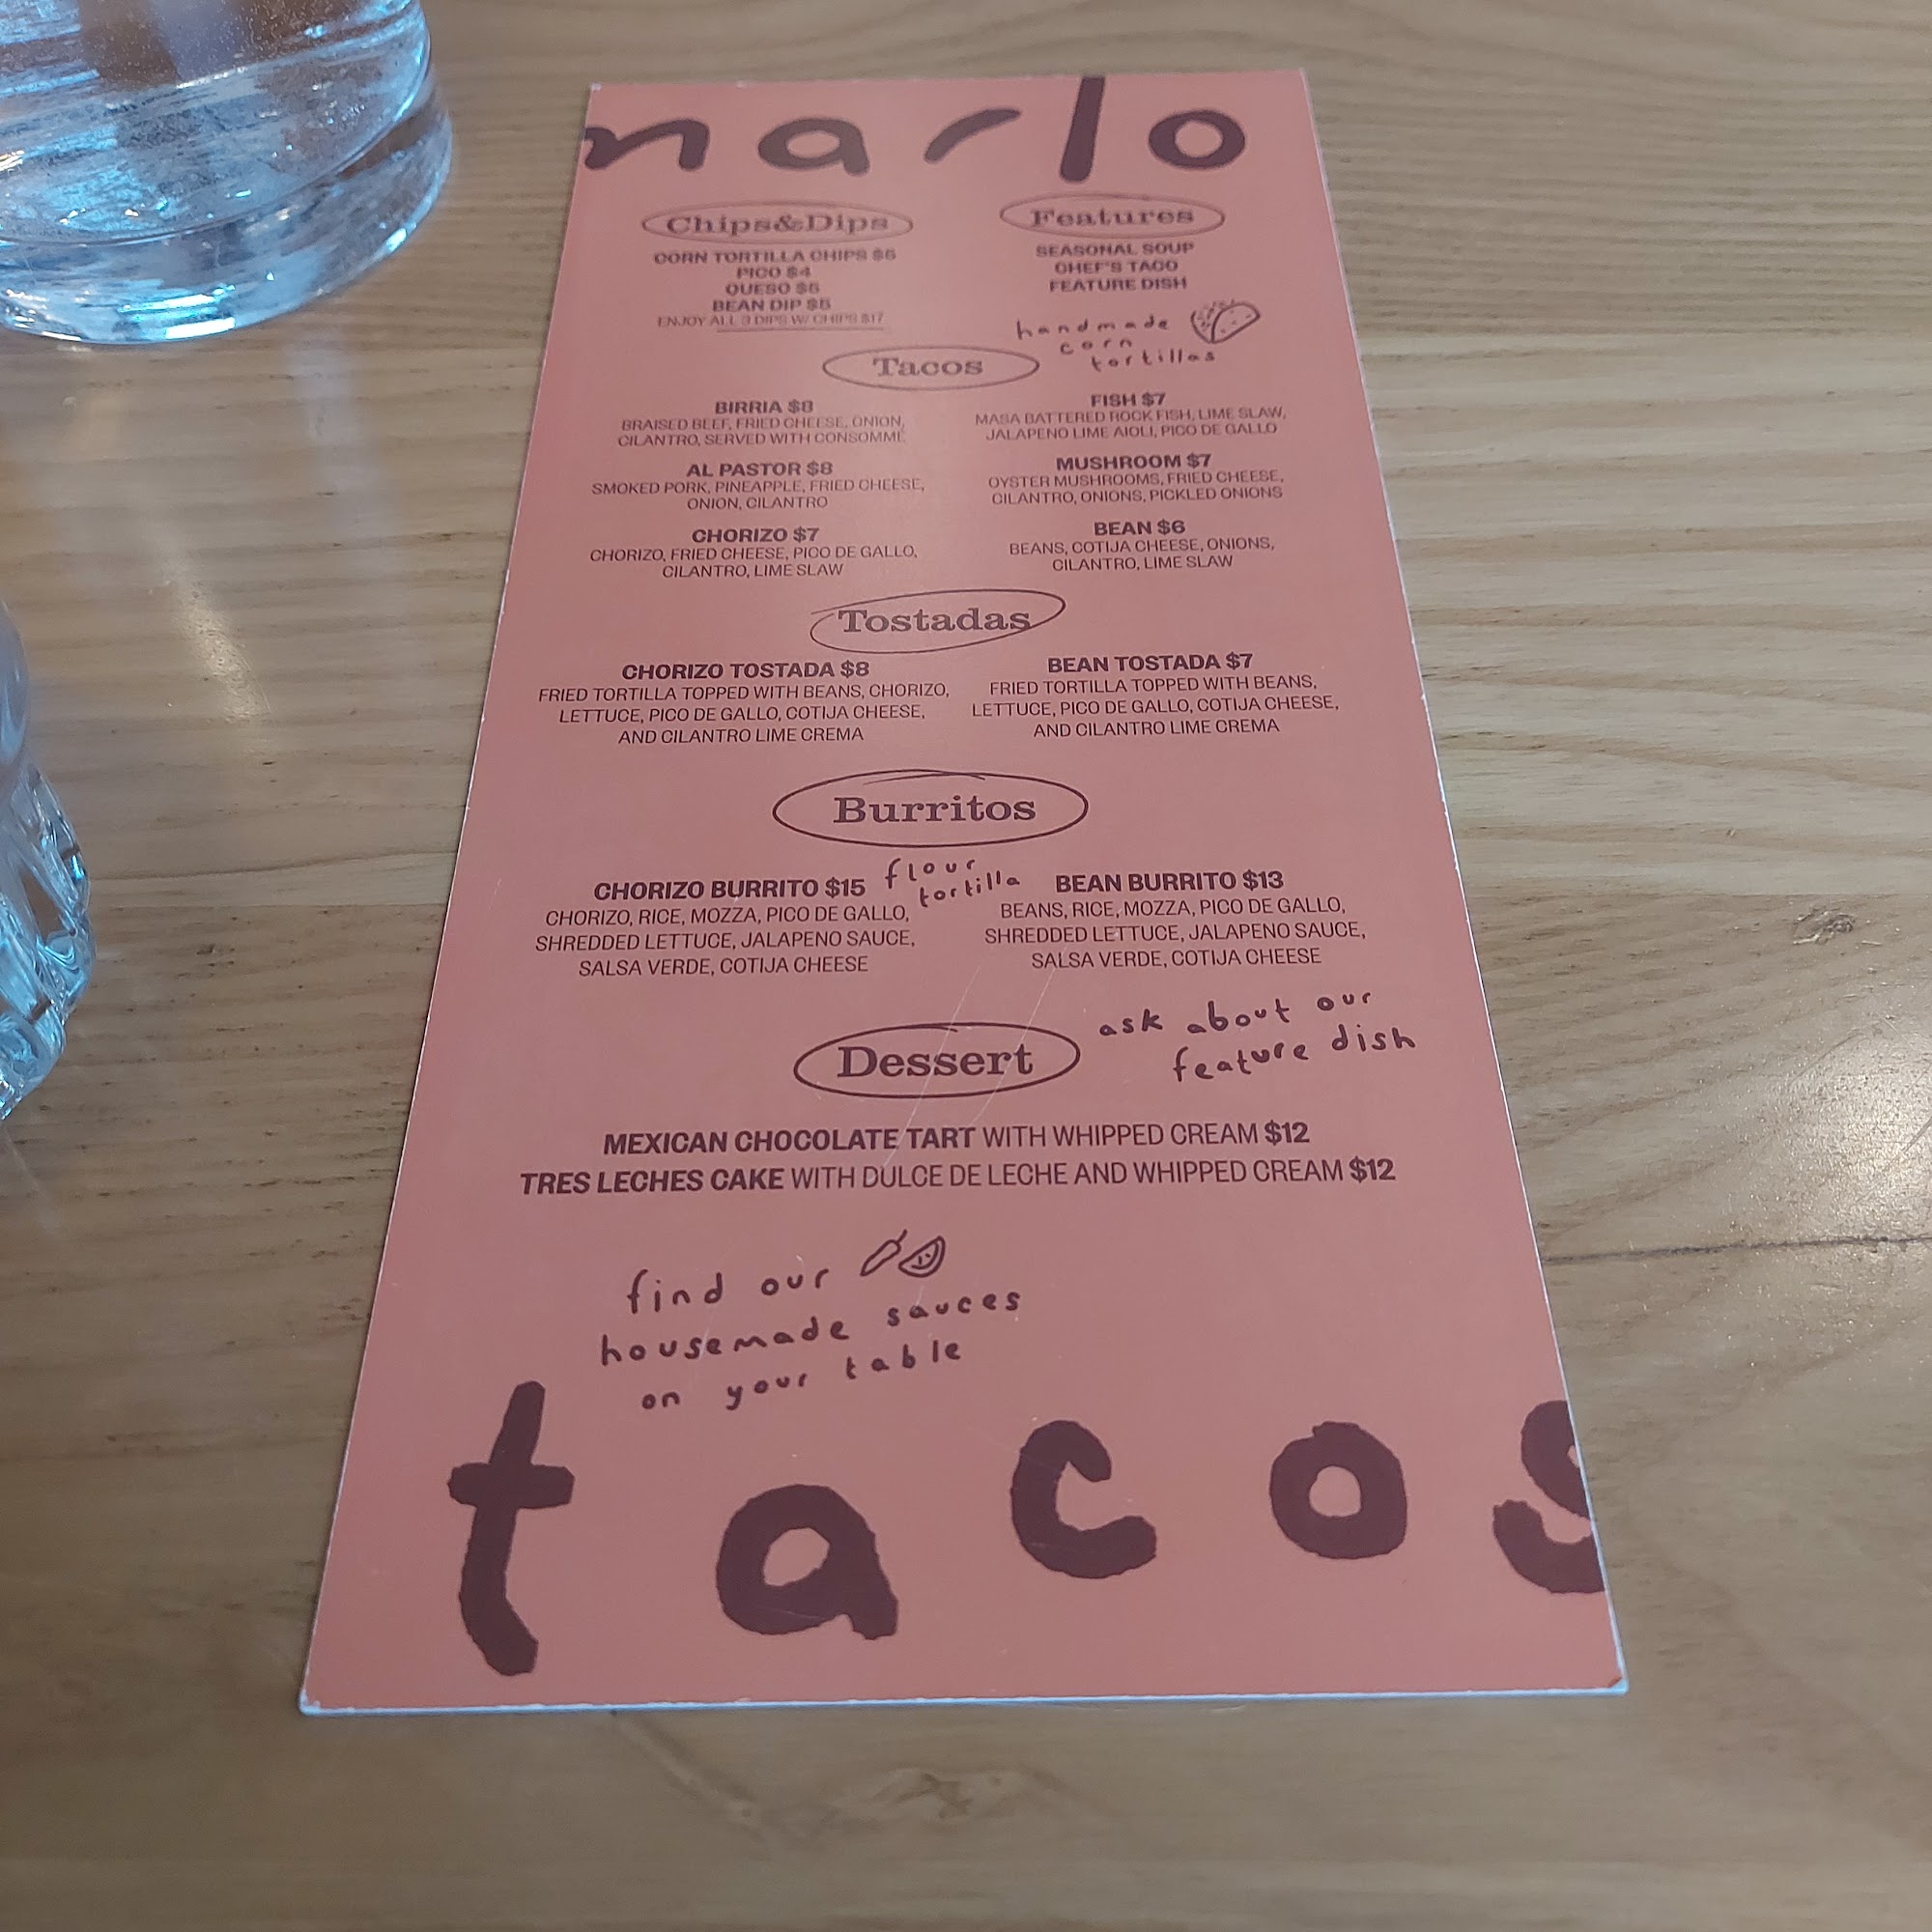 marlo
Chips&Dips
CORN TORTILLA CHIPS
PICO $4
QUESO
BEAN DIP
ENJOY ALL 3 DIPS W/ CHIPS $17
Features
SEASONAL SOUP
CHEF'S TACO
FEATURE DISH
handmade
corn
tortillas
Tacos
BIRRIA $8
BRAISED BEEF, FRIED CHEESE, ONION,
CILANTRO, SERVED WITH CONSOMME
FISH $7
MASA BATTERED ROCK FISH, LIME SLAW,
JALAPENO LIME AIOLI, PICO DE GALLO
AL PASTOR $8
SMOKED PORK, PINEAPPLE, FRIED CHEESE,
ONION, CILANTRO
MUSHROOM $7
OYSTER MUSHROOMS, FRIED CHEESE,
CILANTRO, ONIONS, PICKLED ONIONS
CHORIZO $7
CHORIZO, FRIED CHEESE, PICO DE GALLO,
CILANTRO, LIME SLAW
BEAN $6
BEANS, COTIJA CHEESE, ONIONS,
CILANTRO, LIME SLAW
Tostadas
CHORIZO TOSTADA $8
FRIED TORTILLA TOPPED WITH BEANS, CHORIZO,
LETTUCE, PICO DE GALLO, COTIJA CHEESE,
AND CILANTRO LIME CREMA
BEAN TOSTADA $7
FRIED TORTILLA TOPPED WITH BEANS,
LETTUCE, PICO DE GALLO, COTIJA CHEESE,
AND CILANTRO LIME CREMA
Burritos
flour
tortilla
CHORIZO BURRITO $15
CHORIZO, RICE, MOZZA, PICO DE GALLO,
SHREDDED LETTUCE, JALAPENO SAUCE,
SALSA VERDE, COTIJA CHEESE
BEAN BURRITO $13
BEANS, RICE, MOZZA, PICO DE GALLO,
SHREDDED LETTUCE, JALAPENO SAUCE,
SALSA VERDE, COTIJA CHEESE
ask about our
feature dish
Dessert
MEXICAN CHOCOLATE TART WITH WHIPPED CREAM $12
TRES LECHES CAKE WITH DULCE DE LECHE AND WHIPPED CREAM $12
find our
housemade sauces
on your table
tacos